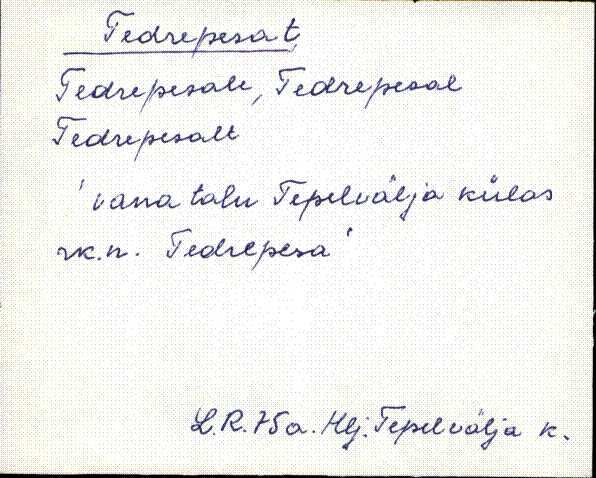 Tedrepesa t,
Tedrepesale, Tedrepesal
Tedrepesalt
' vana talu Tepelvälja külas
rk.n. Tedrepesa '
L.R. 75 a. Hlj. Tepelvälja k.